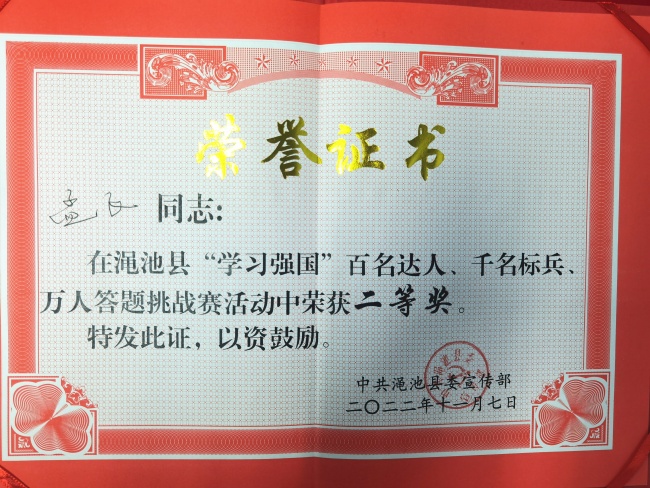 荣誉证书
孟民 同志:
在渑池县“学习强国”百名达人、千名标兵、
万人答题挑战赛活动中荣获二等奖。
特发此证，以资鼓励。
中共渑池县委宣传部
二〇二二年十一月七日